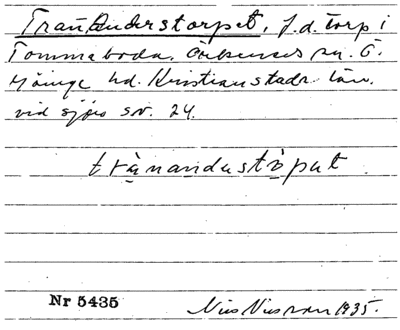 Tran Anderstorpet, f.d. torp i
Tommaboda. Örkeneds sn. Ö.
Göinge hd. Kristianstads län.
vid sjön s.v. 24.
trånandastöpat.
Nr 5435
1935.